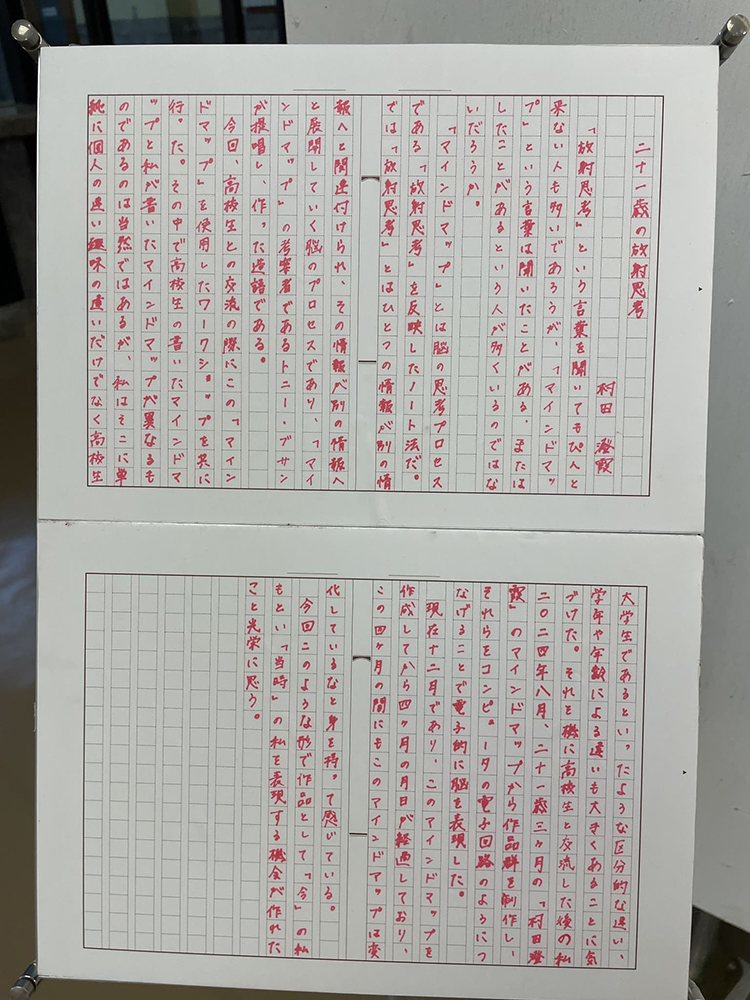 二十一歳の放射思考
村田澄霞
「放射思考」という言葉を聞いてもぴんと
来ない人も多いであろうが、「マインドマッ
プ」という言葉は聞いたことがある、または
したことがあるという人が多くいるのではな
いだろうか。
「マインドマップ」とは脳の思考プロセス
である「放射思考」を反映したノート法だ。
では「放射思考」とはひとつの情報が別の情
報へと関連付けられ、その情報が別の情報へ
と展開していく脳のプロセスであり、「マイ
ンドマップ」の考案者であるトニー・ブサン
が提唱し、作った造語である。
今回、高校生との交流の際にこの「マイン
ドマップ」を使用したワークショップを共に
行った。その中で高校生の書いたマインドマ
ップと私が書いたマインドマップが異なるも
のであるのは当然ではあるが、私はそこに単
純に個人の違い趣味の違いだけでなく高校生
大学生であるといったような区分的な違い、
学年や年齢による違いも大きくあることに気
づけた。それを機に高校生と交流した後の私
二〇二四年八月、二十一歳三ヶ月の「村田澄
霞」のマインドマップから作品群を制作し、
それらをコンピュータの電子回路のようにつ
なげることで電子的に脳を表現した。
現在十二月であり、このマインドマップを
作成してから四ヶ月の月日が経過しており、
この四ヶ月の間にもこのマインドマップは変
化しているなと身を持って感じている。
今回このような形で作品として「今」の私
もとい「当時」の私を表現する機会が作れた
こと光栄に思う。